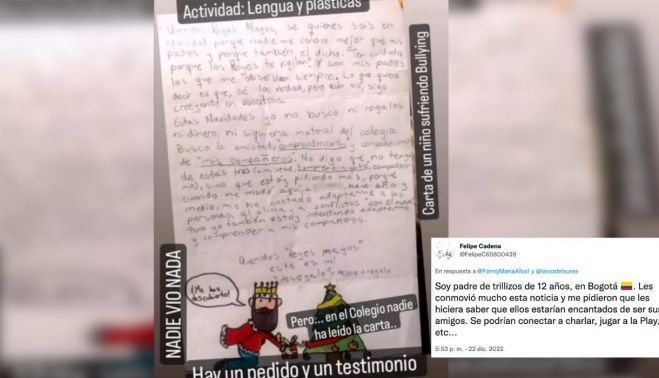 Actividad: Lengua y plásticas
Queridos Reyes Magos, se quienes sois en
realidad porque nadie me conoce mejor que mis
padres y porque también el dicho: Ten cuidado
porque los Reyes te vigilan. Y son mis padres
los que me observan siempre. Lo que quiero
decir es que, sé la verdad, pero aún así, sigo
creyendo en vosotros.
Estas Navidades yo no busco ni regalos,
ni dinero, ni siquiera material del colegio
Busco la amistad, comprendimiento y compañerismo
de "mis compañeros. No digo que no tengo
de estas tres (amistad, comprendimiento, compañerismo
mo), sino que estoy pidiendo más, porque
cuando me mudé aquí, hace año y
medio, me ha costado adaptarme a las
personas, al clima, a conflictos con el
Pero yo también estoy intentando adaptarme
y comprender a mis compañeros.
Queridos "Reyes Magos"
este es mi
"deseo
¡Me has
descubierto!
Pero... en el Colegio nadie
ha leído la carta..
Hay un pedido y un testimonio
NADIE VIO NADA
Carta de un niño sufriendo Bullying
Felipe Cadena
@FelipeC65800439
En respuesta a @FannyMariaAlba1 y @lavozdelsures
Soy padre de trillizos de 12 años, en Bogotá 🇨🇴. Les
conmovió mucho esta noticia y me pidieron que les
hiciera saber que ellos estarían encantados de ser sus
amigos. Se podrían conectar a charlar, jugar a la Play,
etc...
5:53 p. m. · 22 dic. 2022